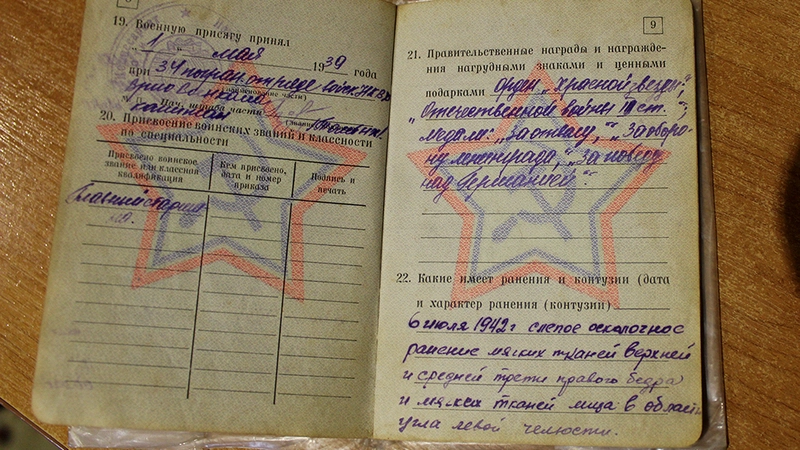 19. Военную присягу принял
„ 1 “ мая 1939 года
при 34 погран. отряде войск НКВД
(наименование части)
Нач. штаба части
капитан
20. Присвоение воинских званий и классности
по специальности
Присвоено воинское звание или классная квалификация
Кем присвоено, дата и номер приказа
Подпись и печать
Главный старши-
на.
9
21. Правительственные награды и награжде-
ния нагрудными знаками и ценными
подарками Орден „Красной звезды“,
„Отечественной войны II ст.“;
медали: „За отвагу“, „За оборо-
ну Ленинграда“, „За победу
над Германией“.
22. Какие имеет ранения и контузии (дата
и характер ранения (контузии)
6 июля 1942 г слепое осколочное
ранение мягких тканей верхней
и средней трети правого бедра
и мягких тканей лица в области
угла левой челюсти.